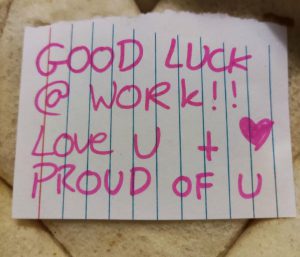 GOOD LUCK
@ WORK!!
LOVE U + ♥
PROUD OF U